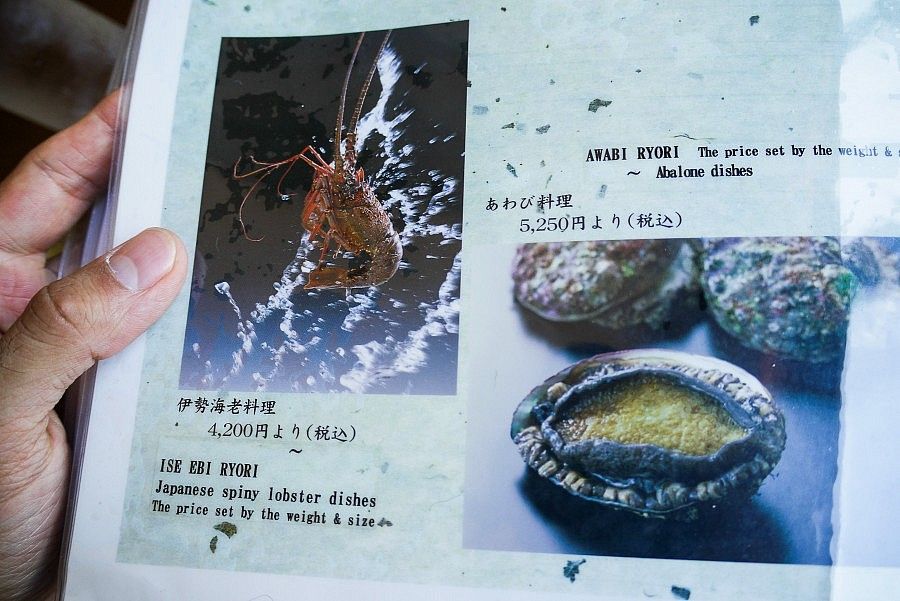 伊勢海老料理
4,200円より(税込)
~
ISE EBI RYORI
Japanese spiny lobster dishes
The price set by the weight & size
AWABI RYORI The price set by the weight &
~ Abalone dishes
あわび料理
5,250円より(税込)